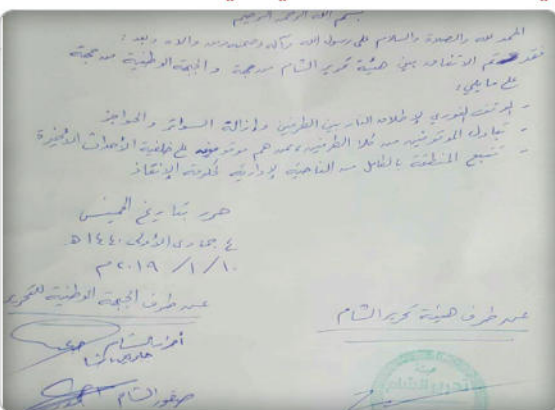 بسم الله الرحمن الرحيم
الحمد لله والصلاة والسلام على رسول الله وآله وصحبه ومن والاه وبعد:
فقد تم الاتفاق بين هيئة تحرير الشام من جهة والجبهة الوطنية من جهة
على ما يلي:
- الوقف الفوري لإطلاق النار بين الطرفين وإزالة السواتر والحواجز
- تبادل الموقوفين من كلا الطرفين ممن هم موقوفين على خلفية الأحداث الأخيرة
- تتبع المنطقة بالكامل من الناحية الإدارية لحكومة الإنقاذ
حرر بتاريخ الخميس
٤ جمادى الأولى ١٤٤٠ هـ
١٠ / ١ / ٢٠١٩ م
عن طرف الجبهة الوطنية للتحرير
عن طرف هيئة تحرير الشام
أحرار الشام
صقور الشام
هيئة
تحرير الشام